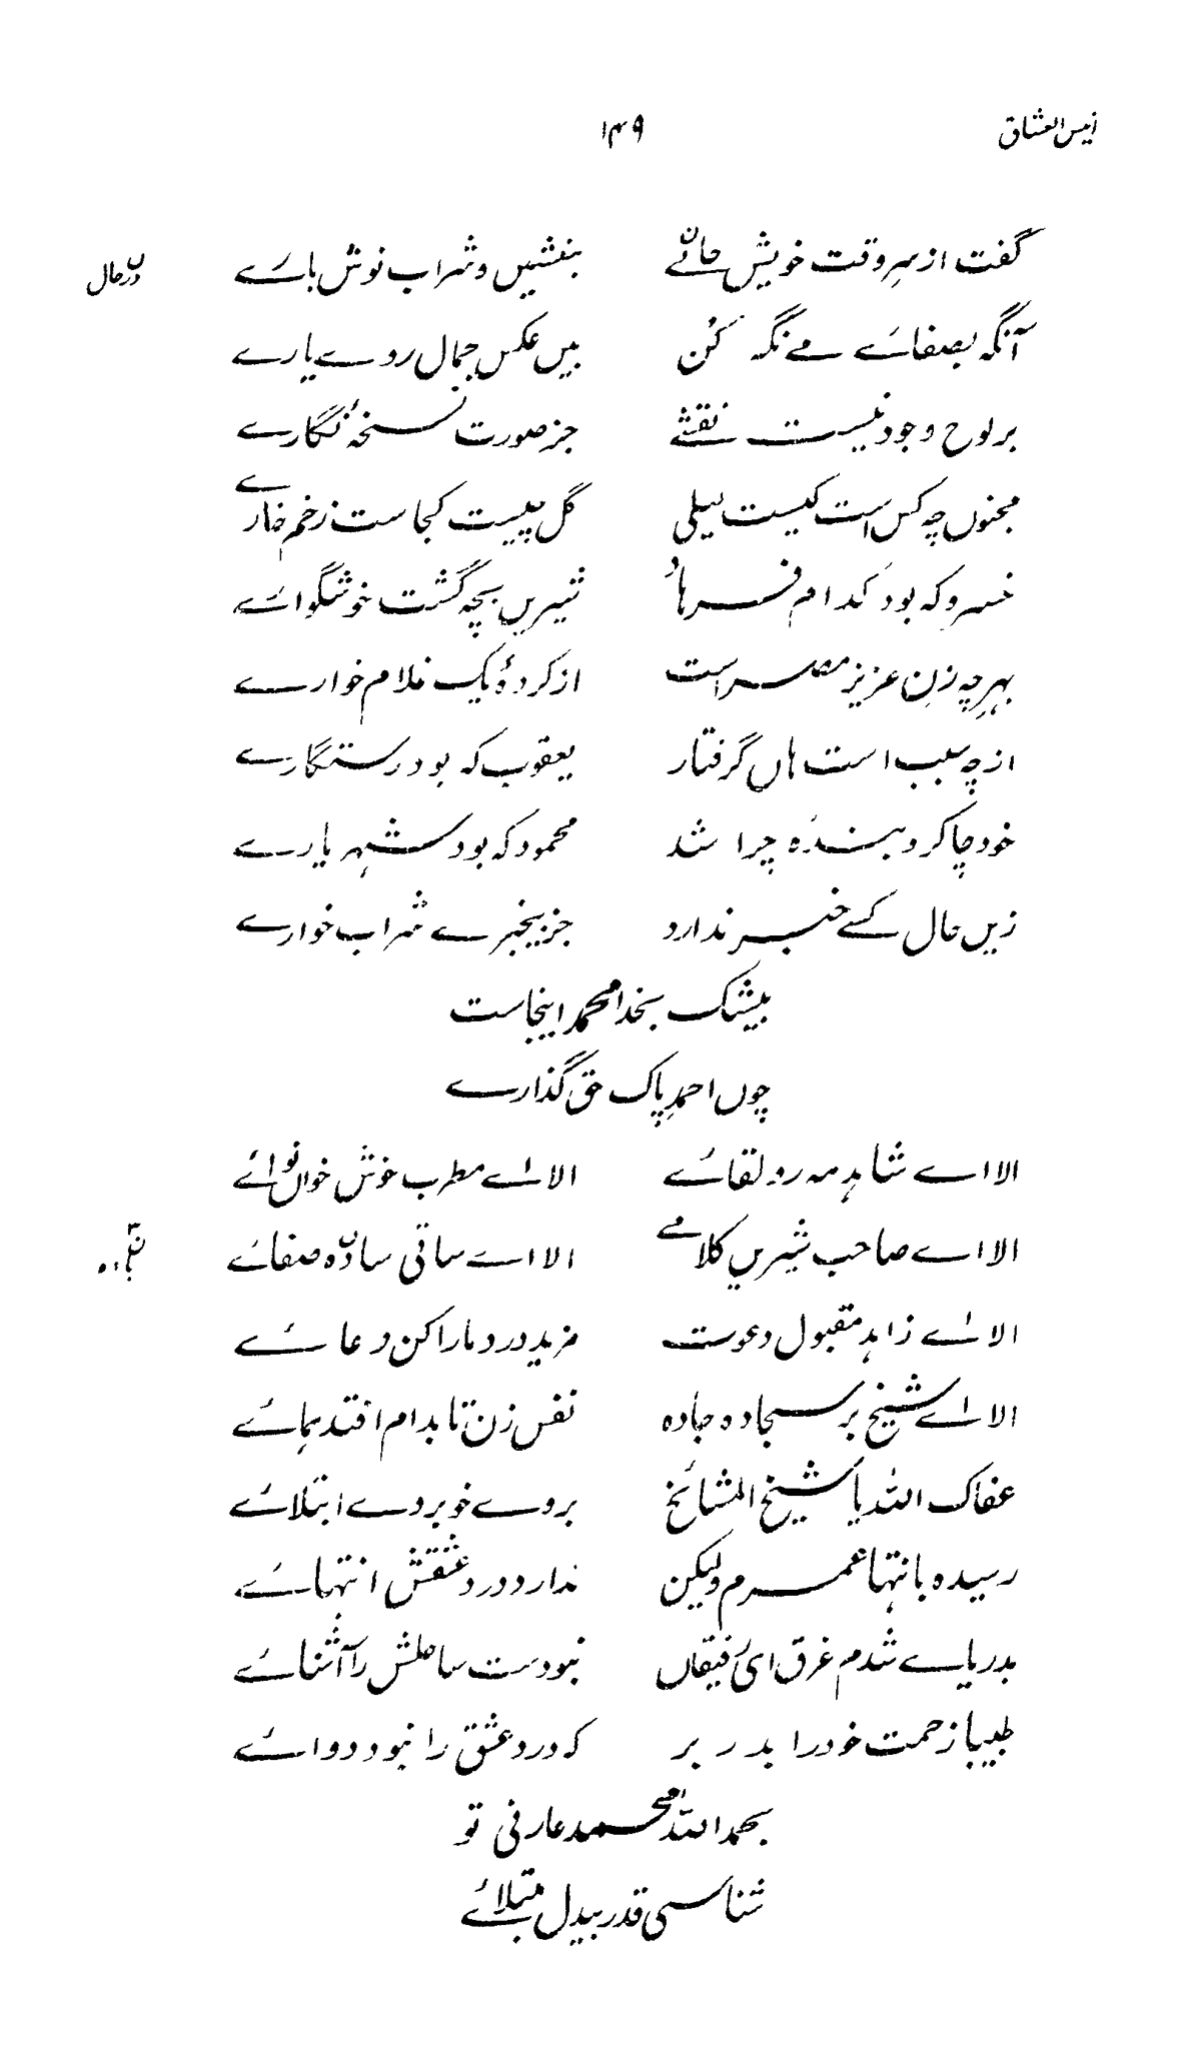 انیس العشاق ۱۴۹
گفت از سرِ وقت خویش حالے بنشیں و شراب نوش بارے
درحال
آنگہ بصفائے مے نگہ کن بیں عکس جمال روے یارے
بر لوح وجود نیست نقشے جز صورت نسخۂ نگارے
مجنوں چہ کس است کیست لیلی گل چیست کجاست زخم خارے
خسرو کہ بود کدام فرہاد شیریں بچہ گشت خوشگوارے
بہرِ چہ زنِ عزیز مصر است از کردۂ یک غلام خوارے
از چہ سبب است ہاں گرفتار یعقوب کہ بود رستگارے
خود چاکر و بندہ چرا شد محمود کہ بود شہر یارے
زیں حال کسے خبر ندارد جز بیخبرے شراب خوارے
بیشک بخدا محمد اینجاست
چوں احمدِ پاک حق گذارے
الا اے شاہدِ مہ رو لقائے الا اے مطرب خوش خواں نوائے
الا اے صاحب شیریں کلامے الا اے ساقی سادہ صفائے
الا اے زاہدِ مقبول دعوت مزید درد مارا کن دعائے
الا اے شیخ بر سجادہ جادہ نفس زن تا بدام افتد ہمائے
عفاک اللہ یا شیخ المشائخ بروے خوبروے ابتلائے
رسیدہ بانتہا عمرم ولیکن ندارد درد عشقش انتہائے
بدریاے شدم غرق اے رفیقاں نبودست ساحلش را آشنائے
طبیبا زحمت خود را بدر بر کہ درد عشق را نبود دوائے
بحمد اللہ محمد عارفی تو
شناسی قدر بیدل مبتلائے